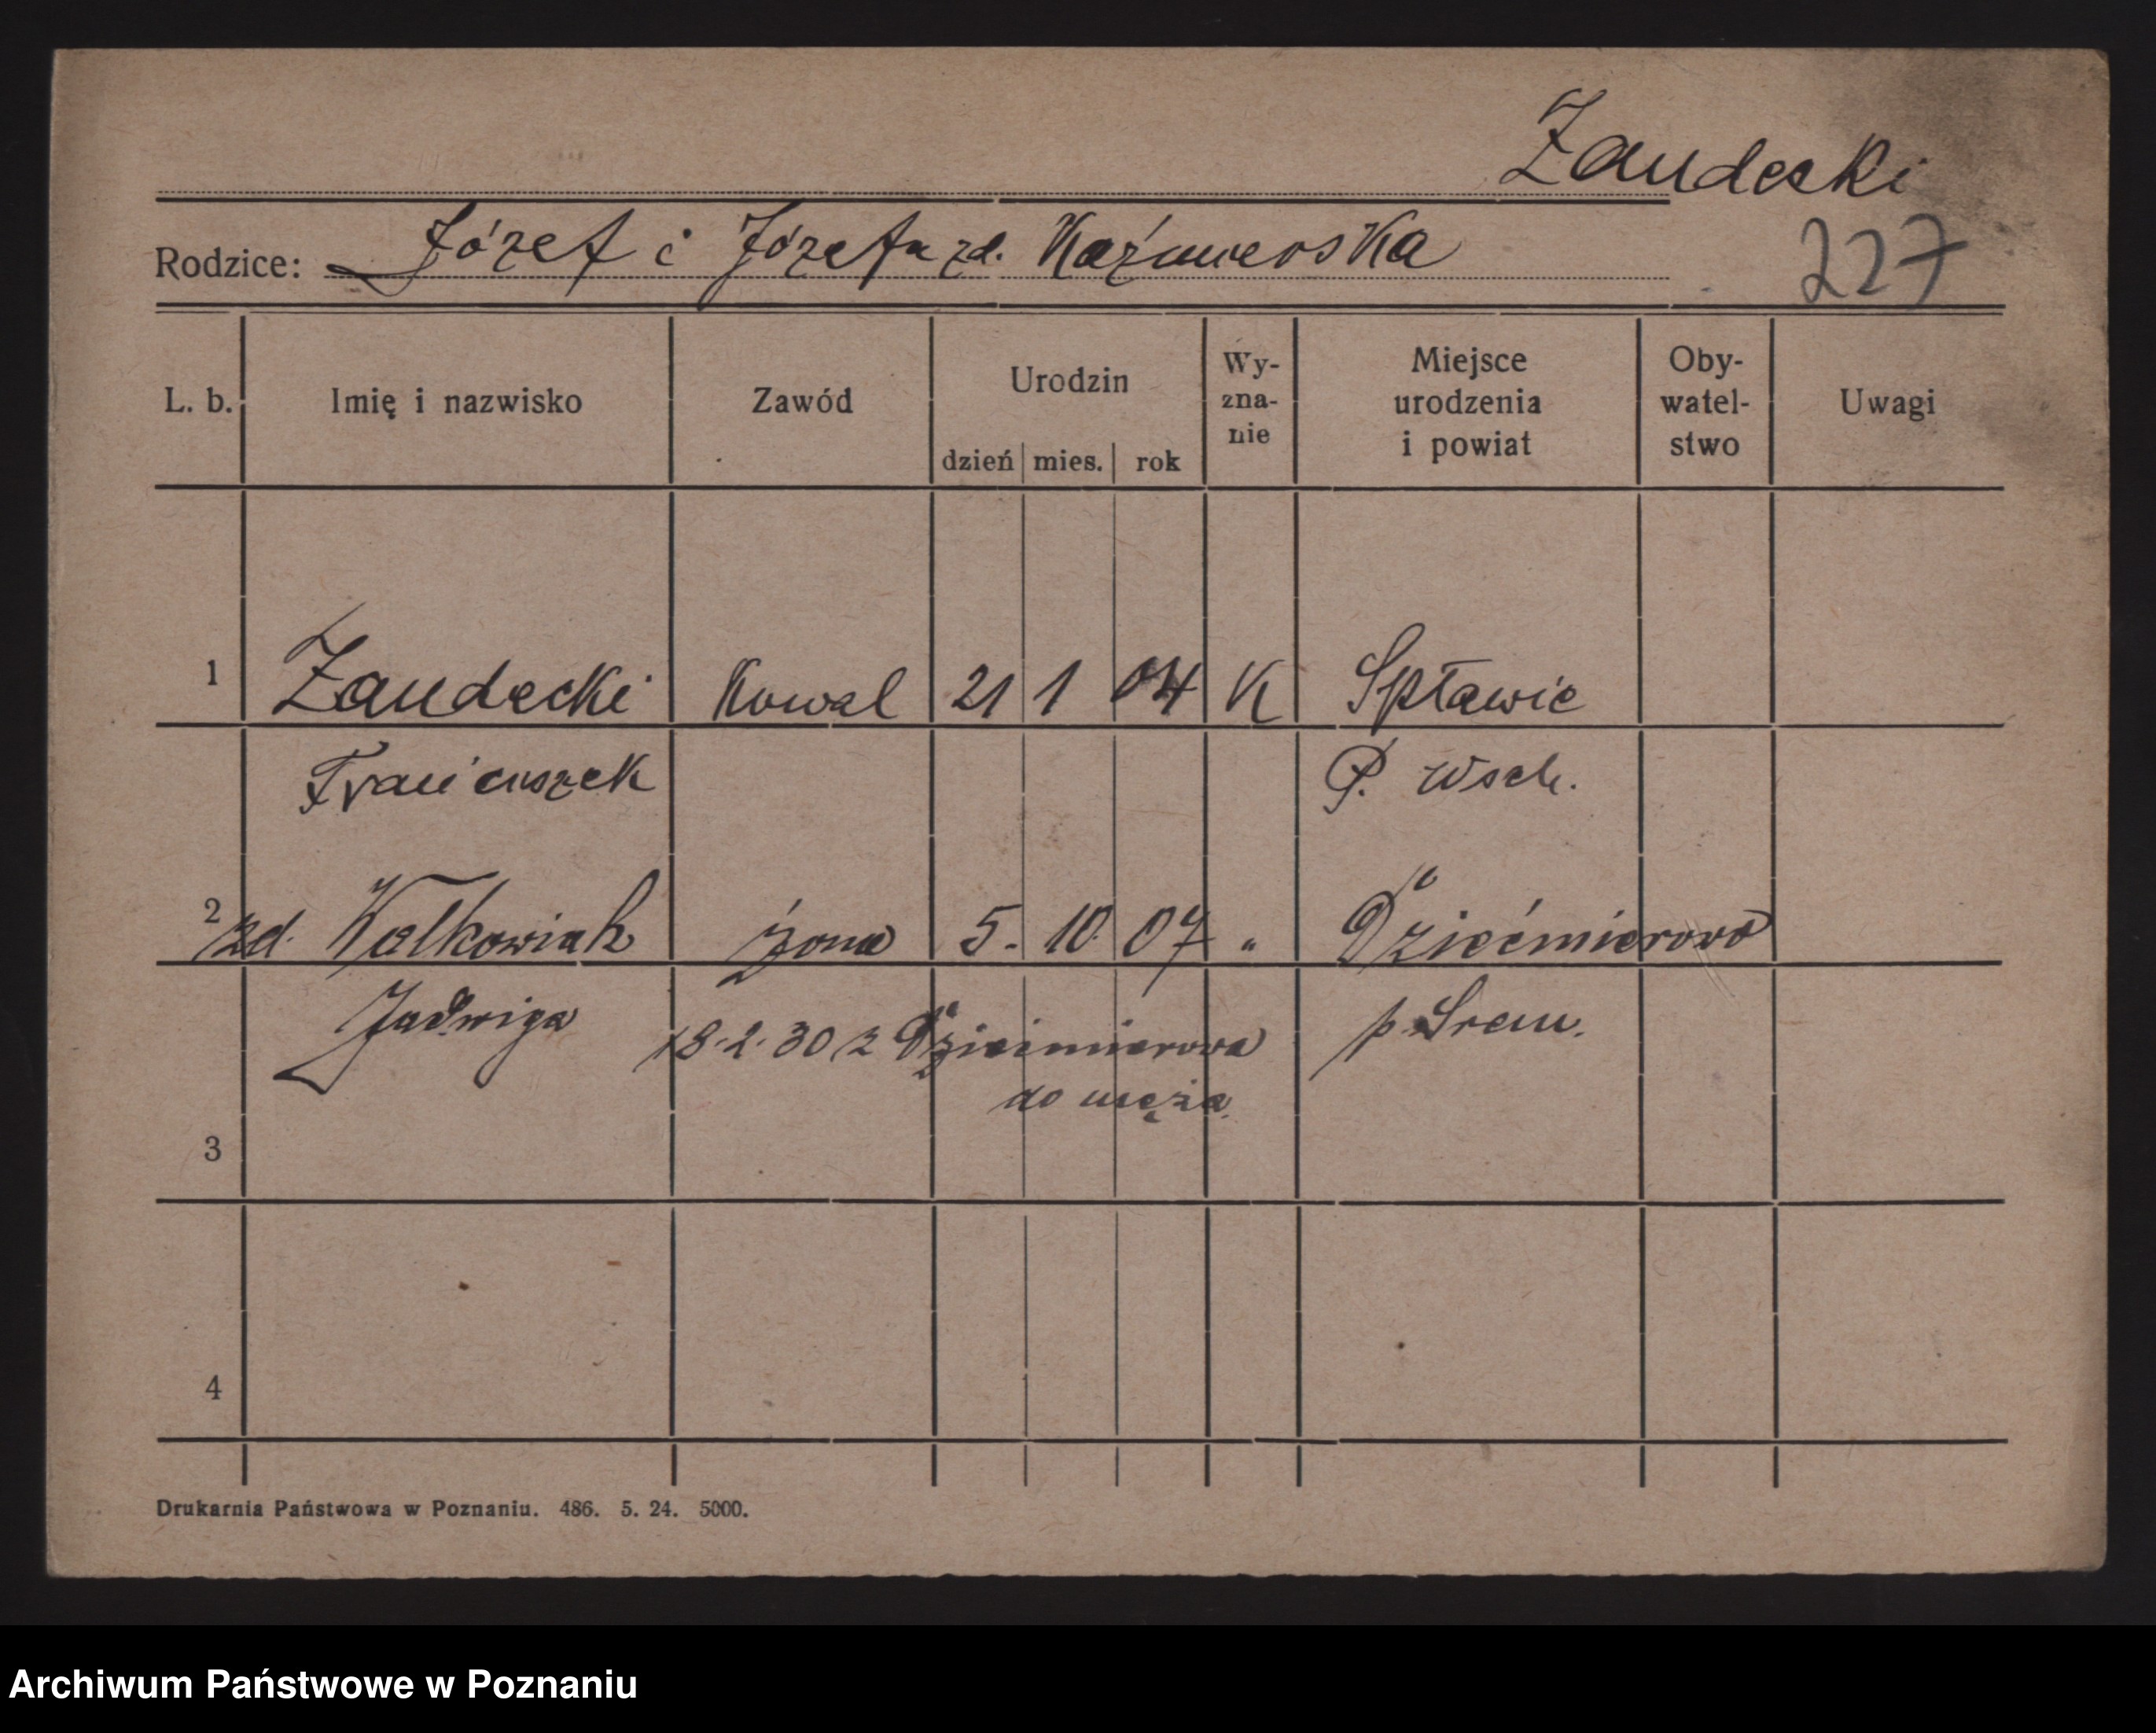 Zaudecki
Rodzice: Józef i Józefa zd. Kaźmierska
227
L. b. Imię i nazwisko Zawód Urodzin dzień mies. rok Wy-zna-nie Miejsce urodzenia i powiat Oby-watel-stwo Uwagi
1 Zaudecki Kowal 21 1 04 K Spławie
Franciszek P. Wsch.
2 zd. Walkowiak żona 5. 10. 07 " Dziećmierowo
Jadwiga 18.2.30 z Dziećmierowa p. Śrem.
do męża.
3
4
Drukarnia Państwowa w Poznaniu. 486. 5. 24. 5000.
Archiwum Państwowe w Poznaniu